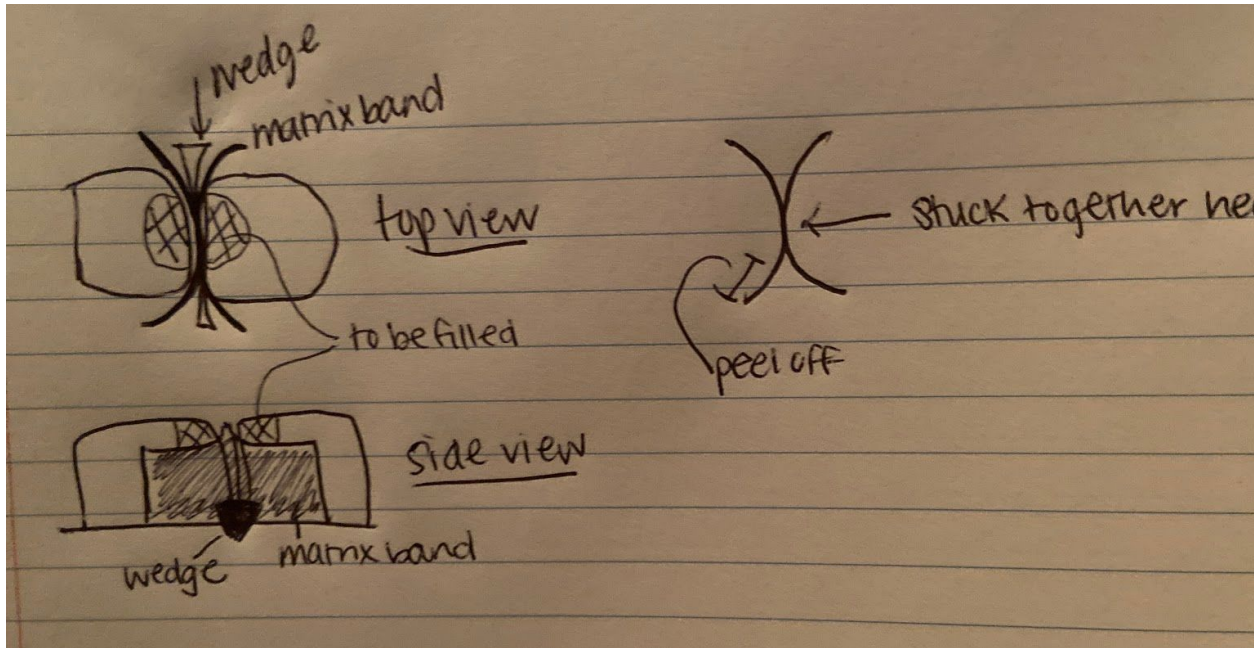 wedge
matrix band
top view
stuck together he
peel off
to be filled
side view
wedge
matrix band